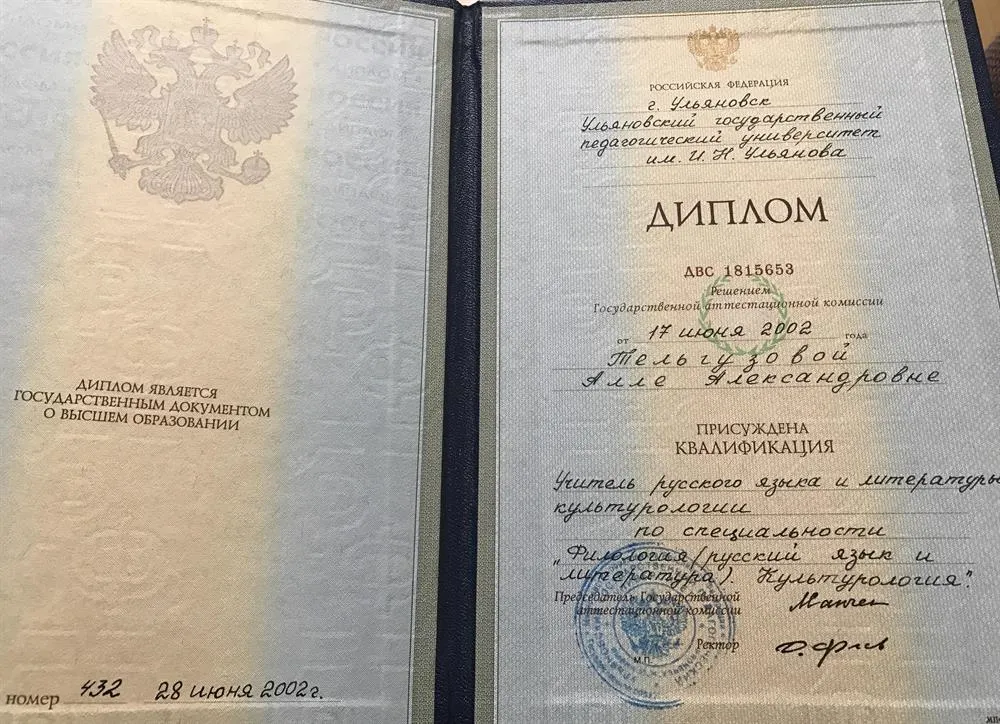 ДИПЛОМ ЯВЛЯЕТСЯ
ГОСУДАРСТВЕННЫМ ДОКУМЕНТОМ
О ВЫСШЕМ ОБРАЗОВАНИИ
номер 432 28 июня 2002г.
РОССИЙСКАЯ ФЕДЕРАЦИЯ
г. Ульяновск
Ульяновский государственный
педагогический университет
им. И. Н. Ульянова
ДИПЛОМ
ДВС 1815653
Решением
Государственной аттестационной комиссии
от 17 июня 2002 года
Тельгузовой
Алле Александровне
ПРИСУЖДЕНА
КВАЛИФИКАЦИЯ
Учитель русского языка и литературы
культурологии
по специальности
„Филология (русский язык и
литература). Культурология"
Председатель Государственной
аттестационной комиссии
Ректор
М.П.